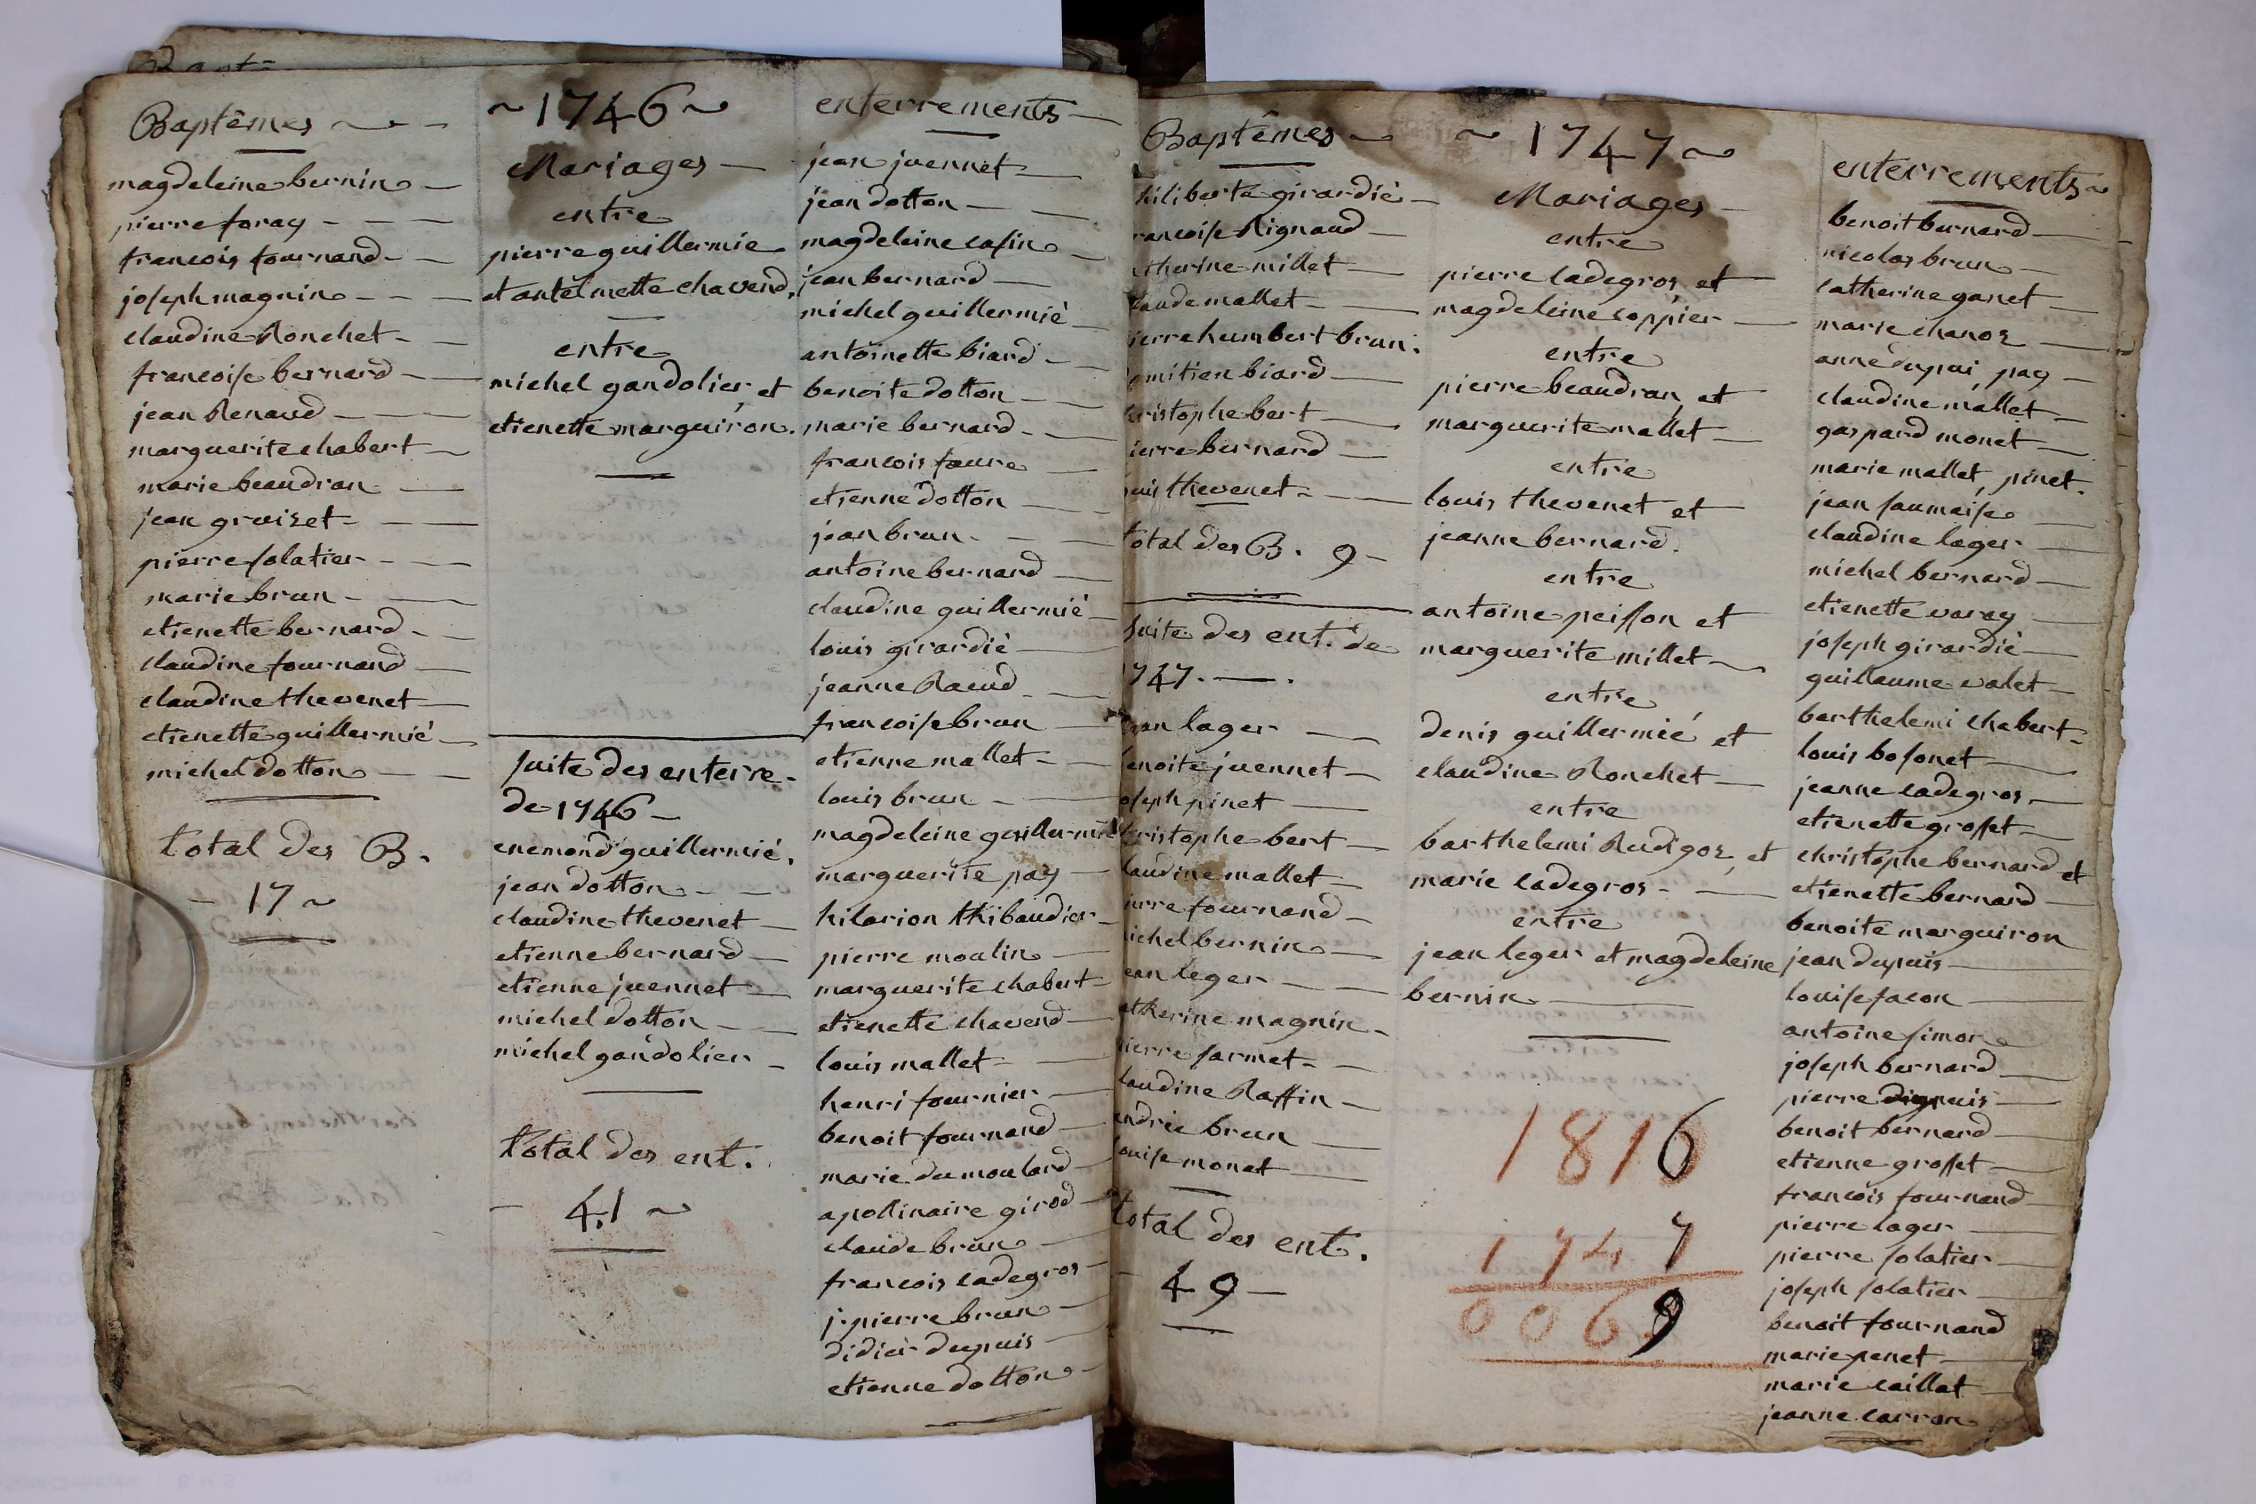 Baptêmes
magdeleine bernin
pierre foray
francois fournand
joseph magnin
claudine Ronchet
francoise bernard
jean Renaud
marguerite chabert
marie beaudran
jean groizet
pierre solatier
marie brun
etienette bernard
claudine fournand
claudine thevenet
etienette guillermié
michel dotton
total des B.
17
1746
Mariages
entre
pierre guillermie
et antelmette chavend,
entre
michel gandolier, et
etienette marguiron.
suite des enterre-
de 1746
enemond guillermié,
jean dotton
claudine thevenet
etienne bernard
etienne juennet
michel dotton
michel gandolier
total des ent.
41
enterrements
jean juennet
jean dotton
magdeleine casin
jean bernard
michel guillermié
antoinette biard
benoite dotton
marie bernard
francois faure
etienne dotton
jean brun
antoine bernard
claudine guillermié
louis girardié
jeanne Raeud
francoise brun
etienne mallet
louis brun
magdeleine guillermié
marguerite pay
hilarion thibaudier
pierre moulin
marguerite chabert
etienette chavend
louis mallet
henri fournier
benoit fournand
marie du moulard
apollinaire girod
claude brun
francois cadegros
j. pierre brun
didier dupuis
etienne dotton
Baptêmes
hiliberte girardié
rancoise Rignaud
therine millet
laude mallet
ierre humbert brun.
omitien biard
ristophe bert
ierre bernard
ouis thevenet
total des B. 9
suite des ent. de
747.
ean lager
enoite juennet
oseph pinet
hristophe bert
laudine mallet
ierre fournand
ichel bernin
ean leger
atherine magnin
ierre sarmet
laudine Raffin
andrée brun
ouise monet
total des ent.
49
1747
Mariages
entre
pierre cadegros, et
magdeleine coppier
entre
pierre beaudran, et
marguerite mallet
entre
louis thevenet et
jeanne bernard.
entre
antoine peisson et
marguerite millet
entre
denis guillermié et
claudine Ronchet
entre
barthelemi Rudigoz, et
marie cadegros
entre
jean leger et magdeleine
bernin
1816
1747
0069
enterrements
benoit bernard
nicolas brun
catherine ganet
marie chanoz
anne dupui pay
claudine mallet
gaspard monet
marie mallet, pinet.
jean saumaise
claudine lager
michel bernard
etienette varay
joseph girardié
guillaume valet
barthelemi chabert
louis bosonet
jeanne cadegros
etienette grosset
christophe bernard et
etienette bernard
benoite marguiron
jean dupuis
louise facon
antoine simon
joseph bernard
pierre dupuis
benoit bernard
etienne grosset
francois fournand
pierre lager
pierre solatier
joseph solatier
benoit fournand
marie penet
marie caillat
jeanne carron